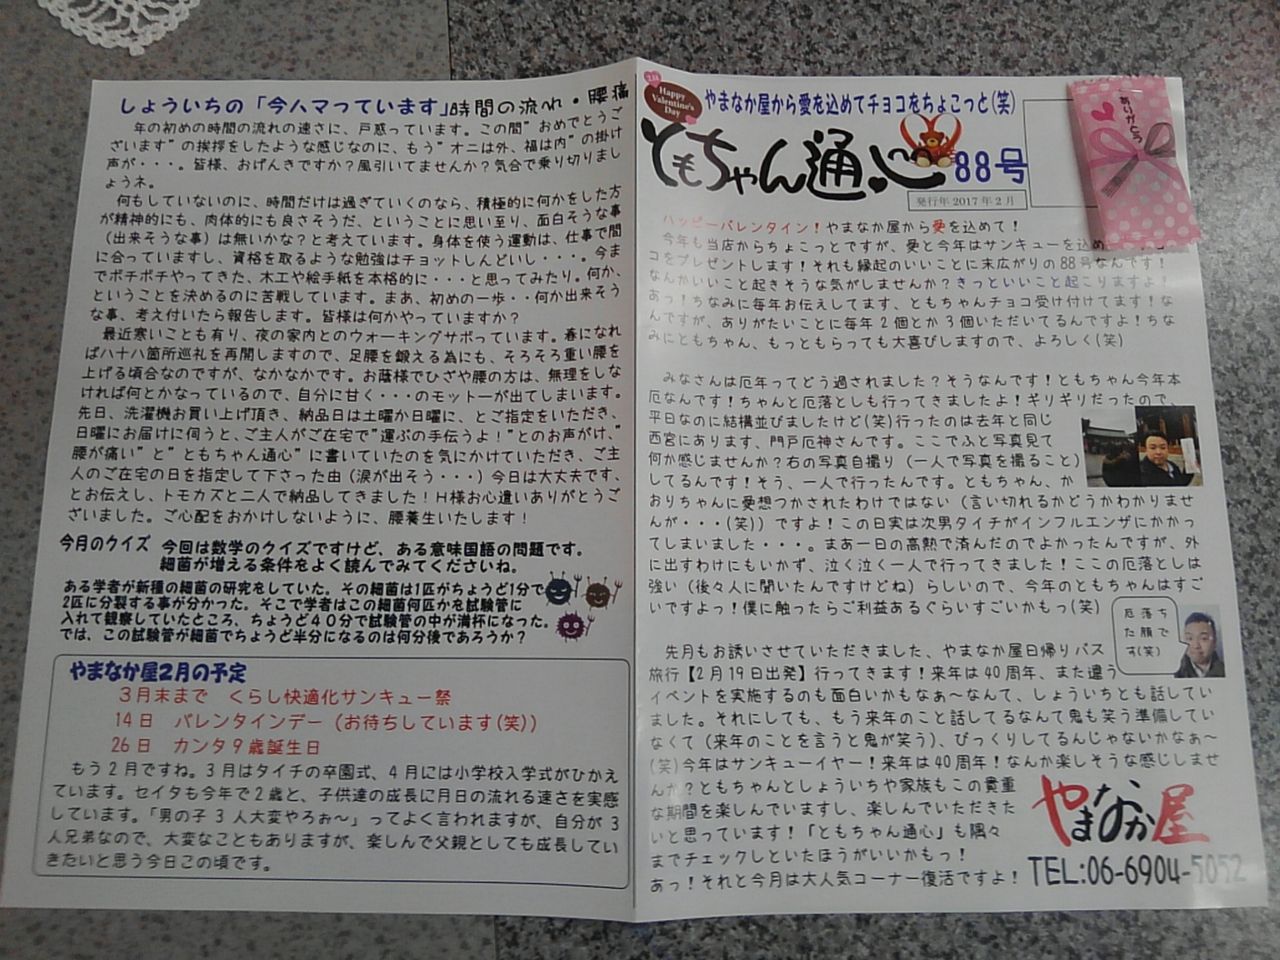 しょういちの「今ハマっています」時間の流れ・腰痛
年の初めの時間の流れの速さに、戸惑っています。この間"おめでとうご
ざいます"の挨拶をしたような感じなのに、もう"オニは外、福は内"の掛け
声が・・・。皆様、おげんきですか?風引いてませんか?気合で乗り切りまし
ょうネ。
何もしていないのに、時間だけは過ぎていくのなら、積極的に何かをした方
が精神的にも、肉体的にも良さそうだ、ということに思い至り、面白そうな事
(出来そうな事)は無いかな?と考えています。身体を使う運動は、仕事で間
に合っていますし、資格を取るような勉強はチョットしんどいし・・・。今ま
でボチボチやってきた、木工や絵手紙を本格的に・・・と思ってみたり。何か、
ということを決めるのに苦戦しています。まあ、初めの一歩・・何か出来そう
な事、考え付いたら報告します。皆様は何かやっていますか?
最近寒いことも有り、夜の家内とのウォーキングサボっています。春になれ
ば八十八箇所巡礼を再開しますので、足腰を鍛える為にも、そろそろ重い腰を
上げる頃合なのですが、なかなかです。お蔭様でひざや腰の方は、無理をしな
ければ何とかなっているので、自分に甘く・・・のモットーが出てしまいます。
先日、洗濯機お買い上げ頂き、納品日は土曜か日曜に、とご指定をいただき、
日曜にお届けに伺うと、ご主人がご在宅で"運ぶの手伝うよ!"とのお声がけ、"
腰が痛い"と"ともちゃん通心"に書いていたのを気にかけていただき、ご主
人のご在宅の日を指定して下さった由(涙が出そう・・・)今日は大丈夫です、
とお伝えし、トモカズと二人で納品してきました!H様お心遣いありがとうご
ざいました。ご心配をおかけしないように、腰養生いたします!
今月のクイズ 今回は数学のクイズですけど、ある意味国語の問題です。
細菌が増える条件をよく読んでみてくださいね。
ある学者が新種の細菌の研究をしていた。その細菌は1匹がちょうど1分で
2匹に分裂する事が分かった。そこで学者はこの細菌何匹かを試験管に
入れて観察していたところ、ちょうど40分で試験管の中が満杯になった。
では、この試験管が細菌でちょうど半分になるのは何分後であろうか?
やまなか屋2月の予定
3月末まで くらし快適化サンキュー祭
14日 バレンタインデー(お待ちしています(笑))
26日 カンタ9歳誕生日
もう2月ですね。3月はタイチの卒園式、4月には小学校入学式がひかえ
ています。セイタも今年で2歳と、子供達の成長に月日の流れる速さを実感
しています。「男の子3人大変やろぉ～」ってよく言われますが、自分が3
人兄弟なので、大変なこともありますが、楽しんで父親としても成長してい
きたいと思う今日この頃です。
2.14
Happy
Valentine's
Day
やまなか屋から愛を込めてチョコをちょこっと(笑)
ともちゃん通心 88号
発行年 2017年2月
ありがとう
ハッピーバレンタイン!やまなか屋から愛を込めて!
今年も当店からちょこっとですが、愛と今年はサンキューを込め
コをプレゼントします!それも縁起のいいことに末広がりの88号なんです!
なんかいいこと起きそうな気がしませんか?きっといいこと起こりますよ!
あっ!ちなみに毎年お伝えしてます、ともちゃんチョコ受け付けてます!な
んですが、ありがたいことに毎年2個とか3個いただいてるんですよ!ちな
みにともちゃん、もっともらっても大喜びしますので、よろしく(笑)
みなさんは厄年ってどう過されました?そうなんです!ともちゃん今年本
厄なんです!ちゃんと厄落としも行ってきましたよ!ギリギリだったので、
平日なのに結構並びましたけど(笑)行ったのは去年と同じ
西宮にあります、門戸厄神さんです。ここでふと写真見て
何か感じませんか?右の写真自撮り(一人で写真を撮ること)
してるんです!そう、一人で行ったんです。ともちゃん、か
おりちゃんに愛想つかされたわけではない(言い切れるかどうかわかりませ
んが・・・(笑))ですよ!この日実は次男タイチがインフルエンザにかかっ
てしまいました・・・。まあ一日の高熱で済んだのでよかったんですが、外
に出すわけにもいかず、泣く泣く一人で行ってきました!ここの厄落としは
強い(後々人に聞いたんですけどね)らしいので、今年のともちゃんはすご
いですよっ!僕に触ったらご利益あるぐらいすごいかもっ(笑)
厄落ち
た顔で
す(笑)
先月もお誘いさせていただきました、やまなか屋日帰りバス
旅行【2月19日出発】行ってきます!来年は40周年、また違う
イベントを実施するのも面白いかもなぁ～なんて、しょういちとも話してい
ました。それにしても、もう来年のこと話してるなんて鬼も笑う準備してい
なくて(来年のことを言うと鬼が笑う)、びっくりしてるんじゃないかなぁ～
(笑)今年はサンキューイヤー!来年は40周年!なんか楽しそうな感じしませ
んか?ともちゃんとしょういちや家族もこの貴重
な期間を楽しんでいますし、楽しんでいただきた
いと思っています!「ともちゃん通心」も隅々
までチェックしといたほうがいいかもっ!
あっ!それと今月は大人気コーナー復活ですよ!
やまなか屋
TEL:06-6904-5052